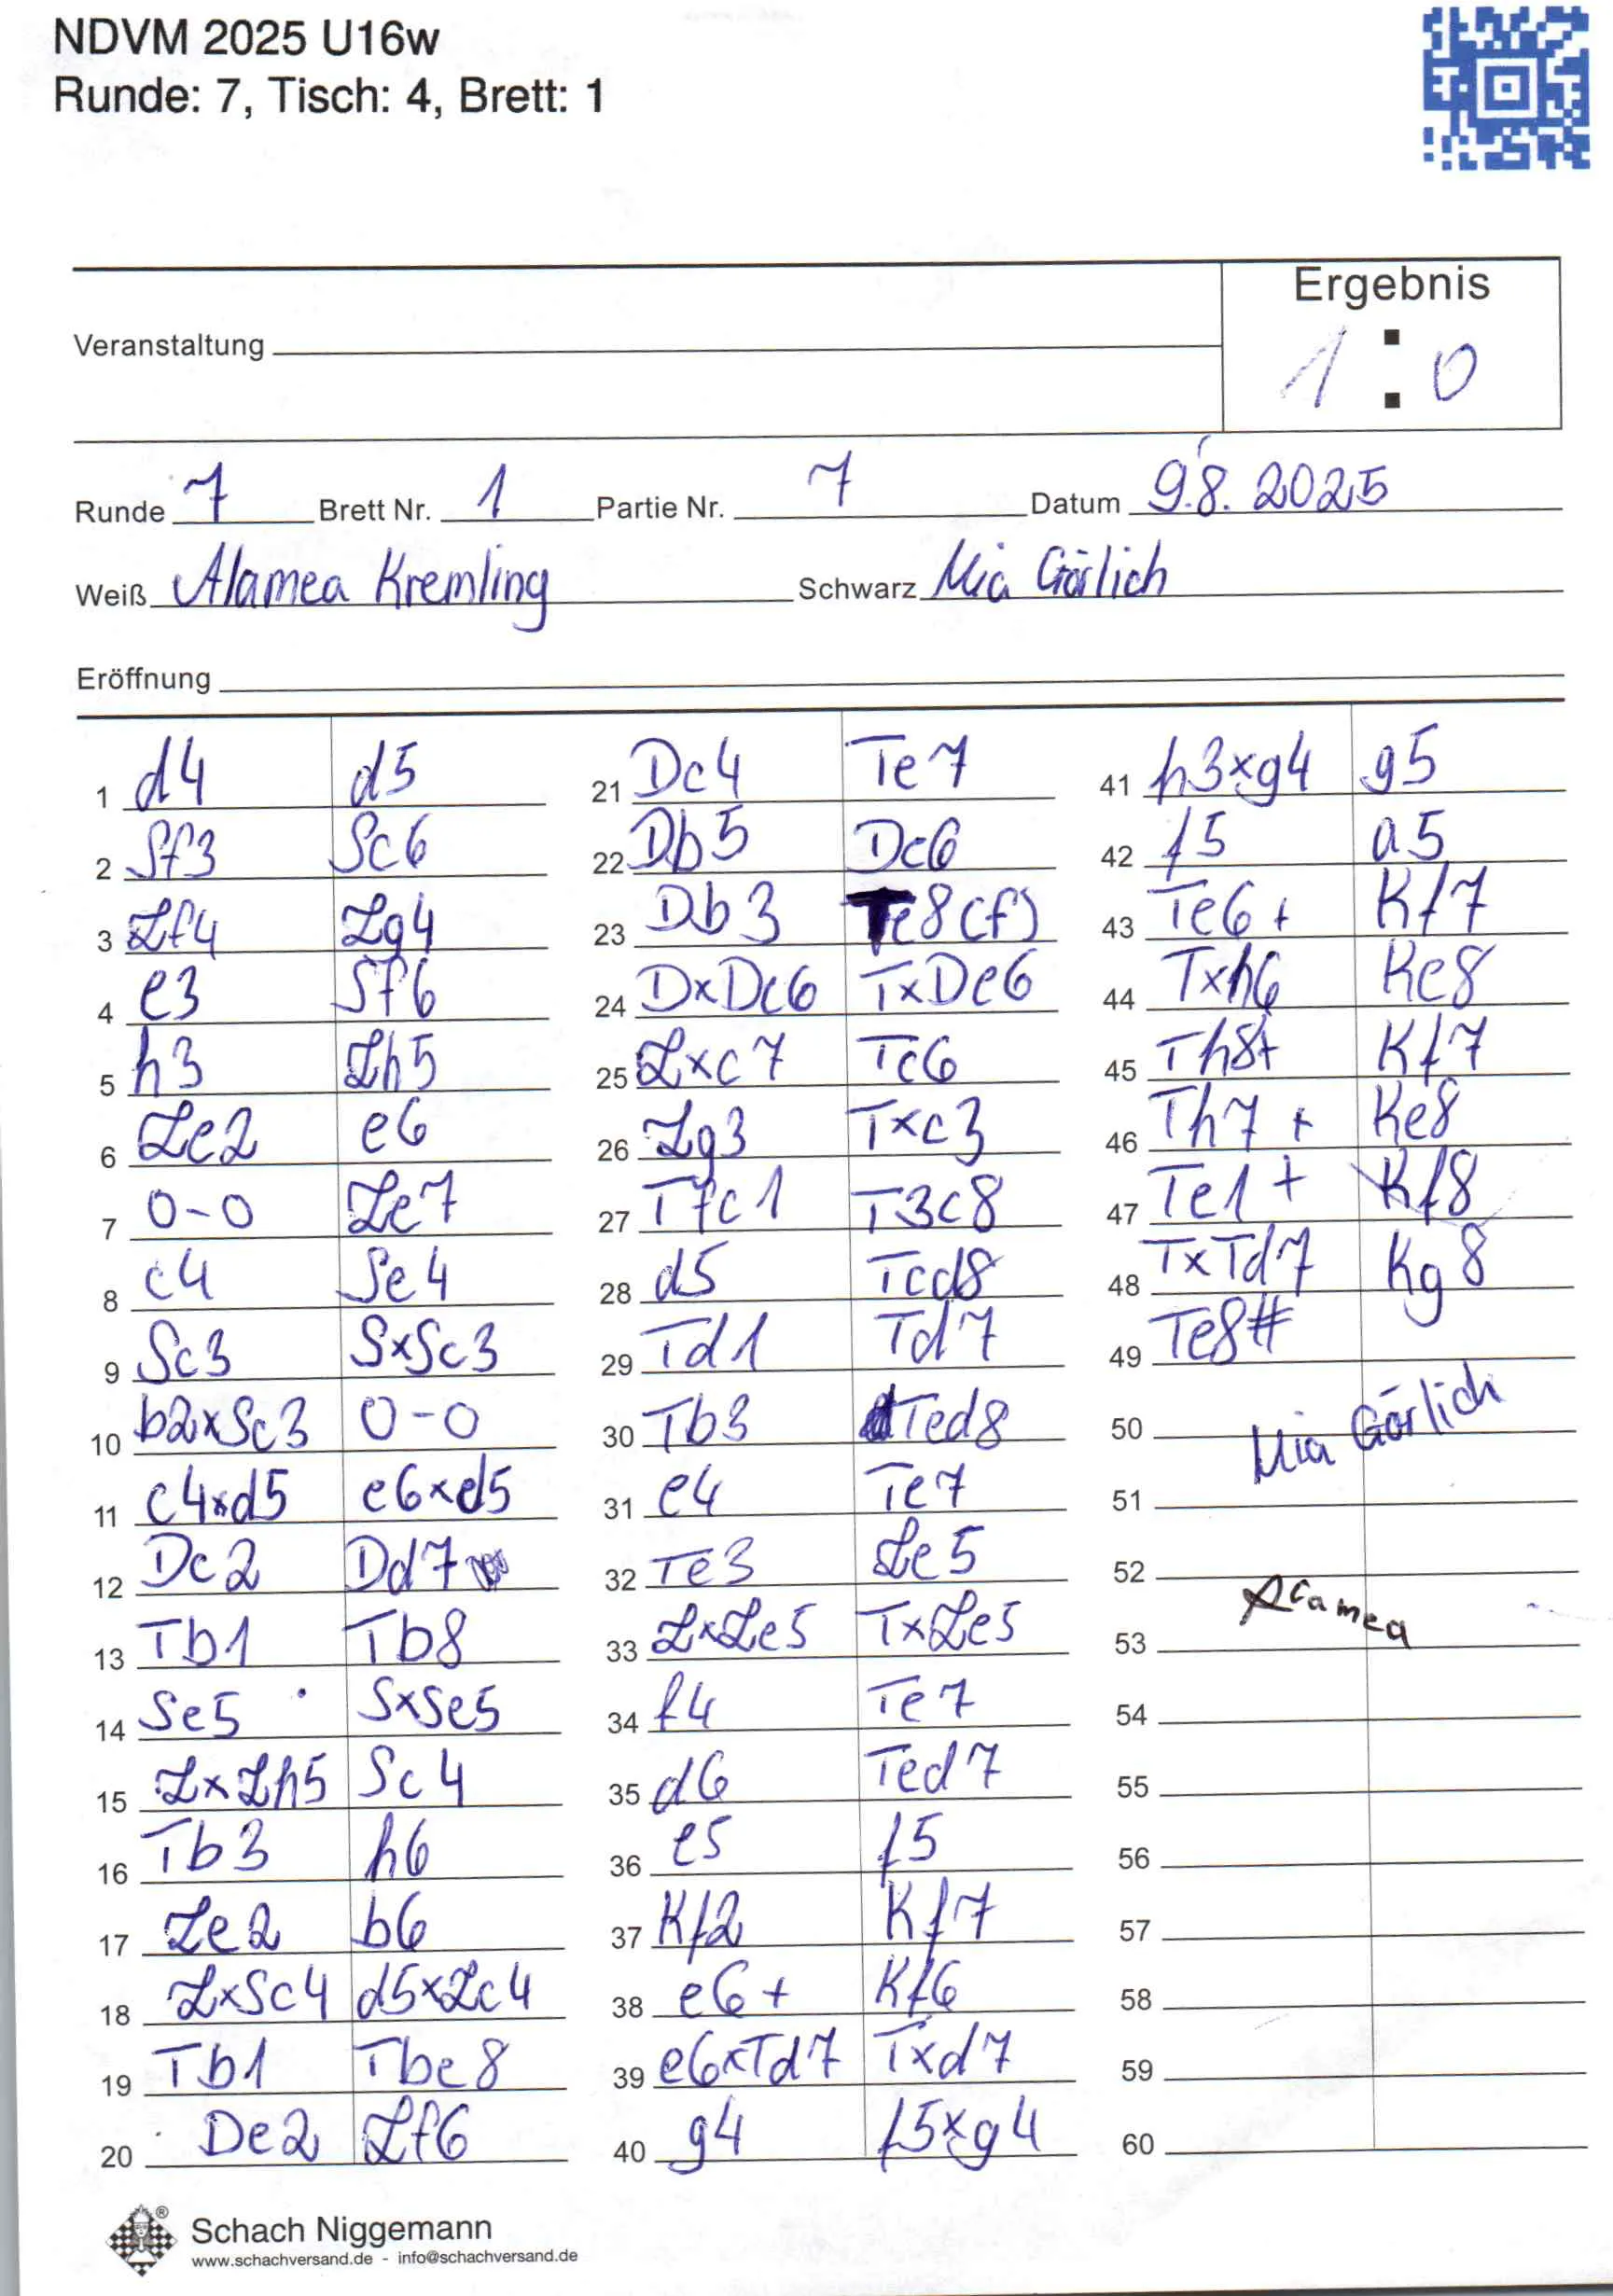 NDVM 2025 U16w
Runde: 7, Tisch: 4, Brett: 1
Ergebnis
Veranstaltung
1 : 0
Runde 7 Brett Nr. 1 Partie Nr. 7 Datum 9.8. 2025
Weiß Alamea Kremling Schwarz Mia Görlich
Eröffnung
1 d4 d5
2 Sf3 Sc6
3 Lf4 Lg4
4 e3 Sf6
5 h3 Lh5
6 Le2 e6
7 0-0 Le7
8 c4 Se4
9 Sc3 SxSc3
10 b2xSc3 0-0
11 c4xd5 e6xd5
12 Dc2 Dd7
13 Tb1 Tb8
14 Se5 SxSe5
15 LxLh5 Sc4
16 Tb3 h6
17 Le2 b6
18 LxSc4 d5xLc4
19 Tb1 Tbe8
20 De2 Lf6
21 Dc4 Te7
22 Db5 Dc6
23 Db3 Te8(f)
24 DxDc6 TxDc6
25 Lxc7 Tc6
26 Lg3 Txc3
27 Tfc1 T3c8
28 d5 Tcd8
29 Td1 Td7
30 Tb3 Ted8
31 e4 Te7
32 Te3 Le5
33 LxLe5 TxLe5
34 f4 Te7
35 d6 Ted7
36 e5 f5
37 Kf2 Kf7
38 e6+ Kf6
39 e6xTd7 Txd7
40 g4 f5xg4
41 h3xg4 g5
42 f5 a5
43 Te6+ Kf7
44 Txh6 Ke8
45 Th8+ Kf7
46 Th7+ Ke8
47 Te1+ Kf8
48 TxTd7 Kg8
49 Te8#
50 Mia Görlich
51
52
53 Alamea
54
55
56
57
58
59
60
Schach Niggemann
www.schachversand.de - info@schachversand.de